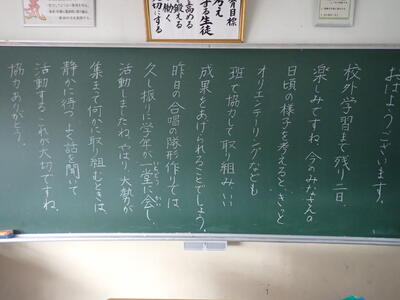 おはようございます。
校外学習まで残り二日。
楽しみですね。今のみなさんの
日頃の様子を考えると、きっと
オリエンテーリングなども
班で協力して取り組み、いい
成果をあげられることでしょう。
昨日の合唱の隊形作りでは、
久し振りに学年が一堂に会し、
いちどう かい
活動しましたね。やはり大勢が
集まって何かに取り組むときは、
静かに待つ、よく話を聞いて
活動する。これが大切ですね。
協力ありがとう。
育目標
考え
する生徒
高める
鍛える
働
切にする